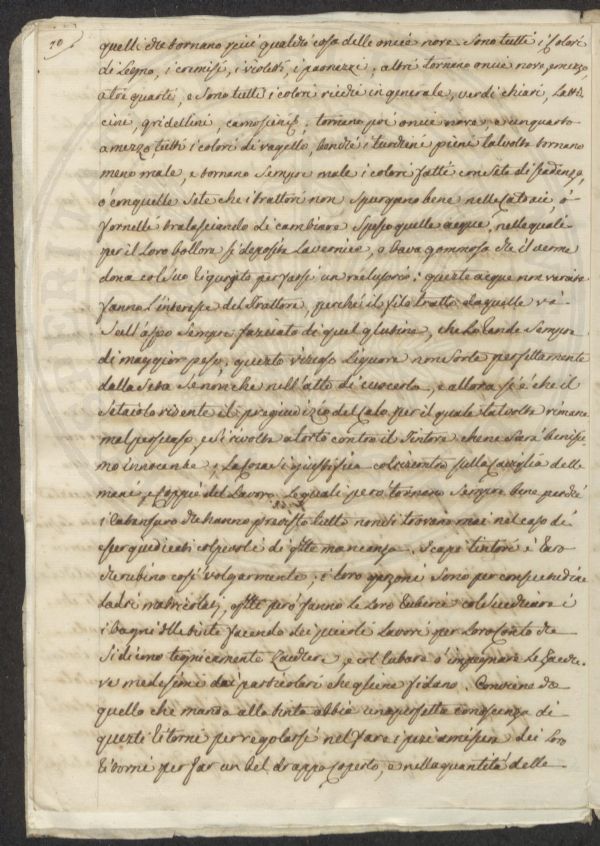 70
quelli che tornano più qualche cosa delle oncie nove. Sono tutti i Colori
di Legno, i cremisi, i violetti, i paonazzi, altri tornano oncie nove, e mezzo,
o tre quarti, e sono tutti i colori ricchi in generale, verdi chiari, Latti
cini, gridellini, camoscini &c, tornano poi oncie nove, e un quarto
a mezzo tutti i colori di vagello, benchè i turchini pieni talvolta tornano
meno male, e tornano sempre male i colori fatti con Sete di
o con quelle Sete che i trattori non spurgano bene nelle Caldaie, o
fornelli tralasciando di cambiare spesso quelle acque, nelle quali
per il Loro bollore si deposita La vernice, o bava gommosa che il verme
dona col suo rigurgito per farsi un : queste acque non variate
fanno L'interesse del Trattore, perchè il filo tratto da quelle và
Sull'aspo Sempre fasciato di quel glutine, che Lo rende Sempre
di maggior peso, questo viscoso Liquore non Sorte perfettamente
dalla Seta Se non che nell'atto di cuocerla, e allora si è che il
Setaiolo risente il pregiudizio del Calo per il quale talvolta rimane
mal persuaso, e si rivolta a torto contro il Tintore che ne Sarà benissi
mo innocente, La Cosa si giustifica col riscontro sulla Caviglia delle
mani, e coppie del Lavoro Le quali però tornano Sempre bene perchè
i che hanno previsto tutto non si trovano mai nel caso di
esser giudicati colpevoli di q.tta mancanza. I capi tintori è raro
che rubino così volgarmente; i loro garzoni Sono per consuetudine
Ladri matricolati, q.tti però fanno Le Loro ruberie col
i Bagni delle tinte facendo dei piccoli Lavori per Loro Conto che
Si dicono tegnicamente , e col rubare o impegnare Le Sete
ve medesimi dai particolari che gliene fidano. Conviene che
quello che manda alla tinta abbia una perfetta conoscenza di
questi ritorni per regolarsi nel fare i pezi a misura dei Loro
ritorni per far un bel drappo coperto, e nella quantità delle